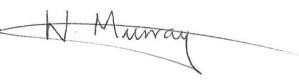 N. Murray